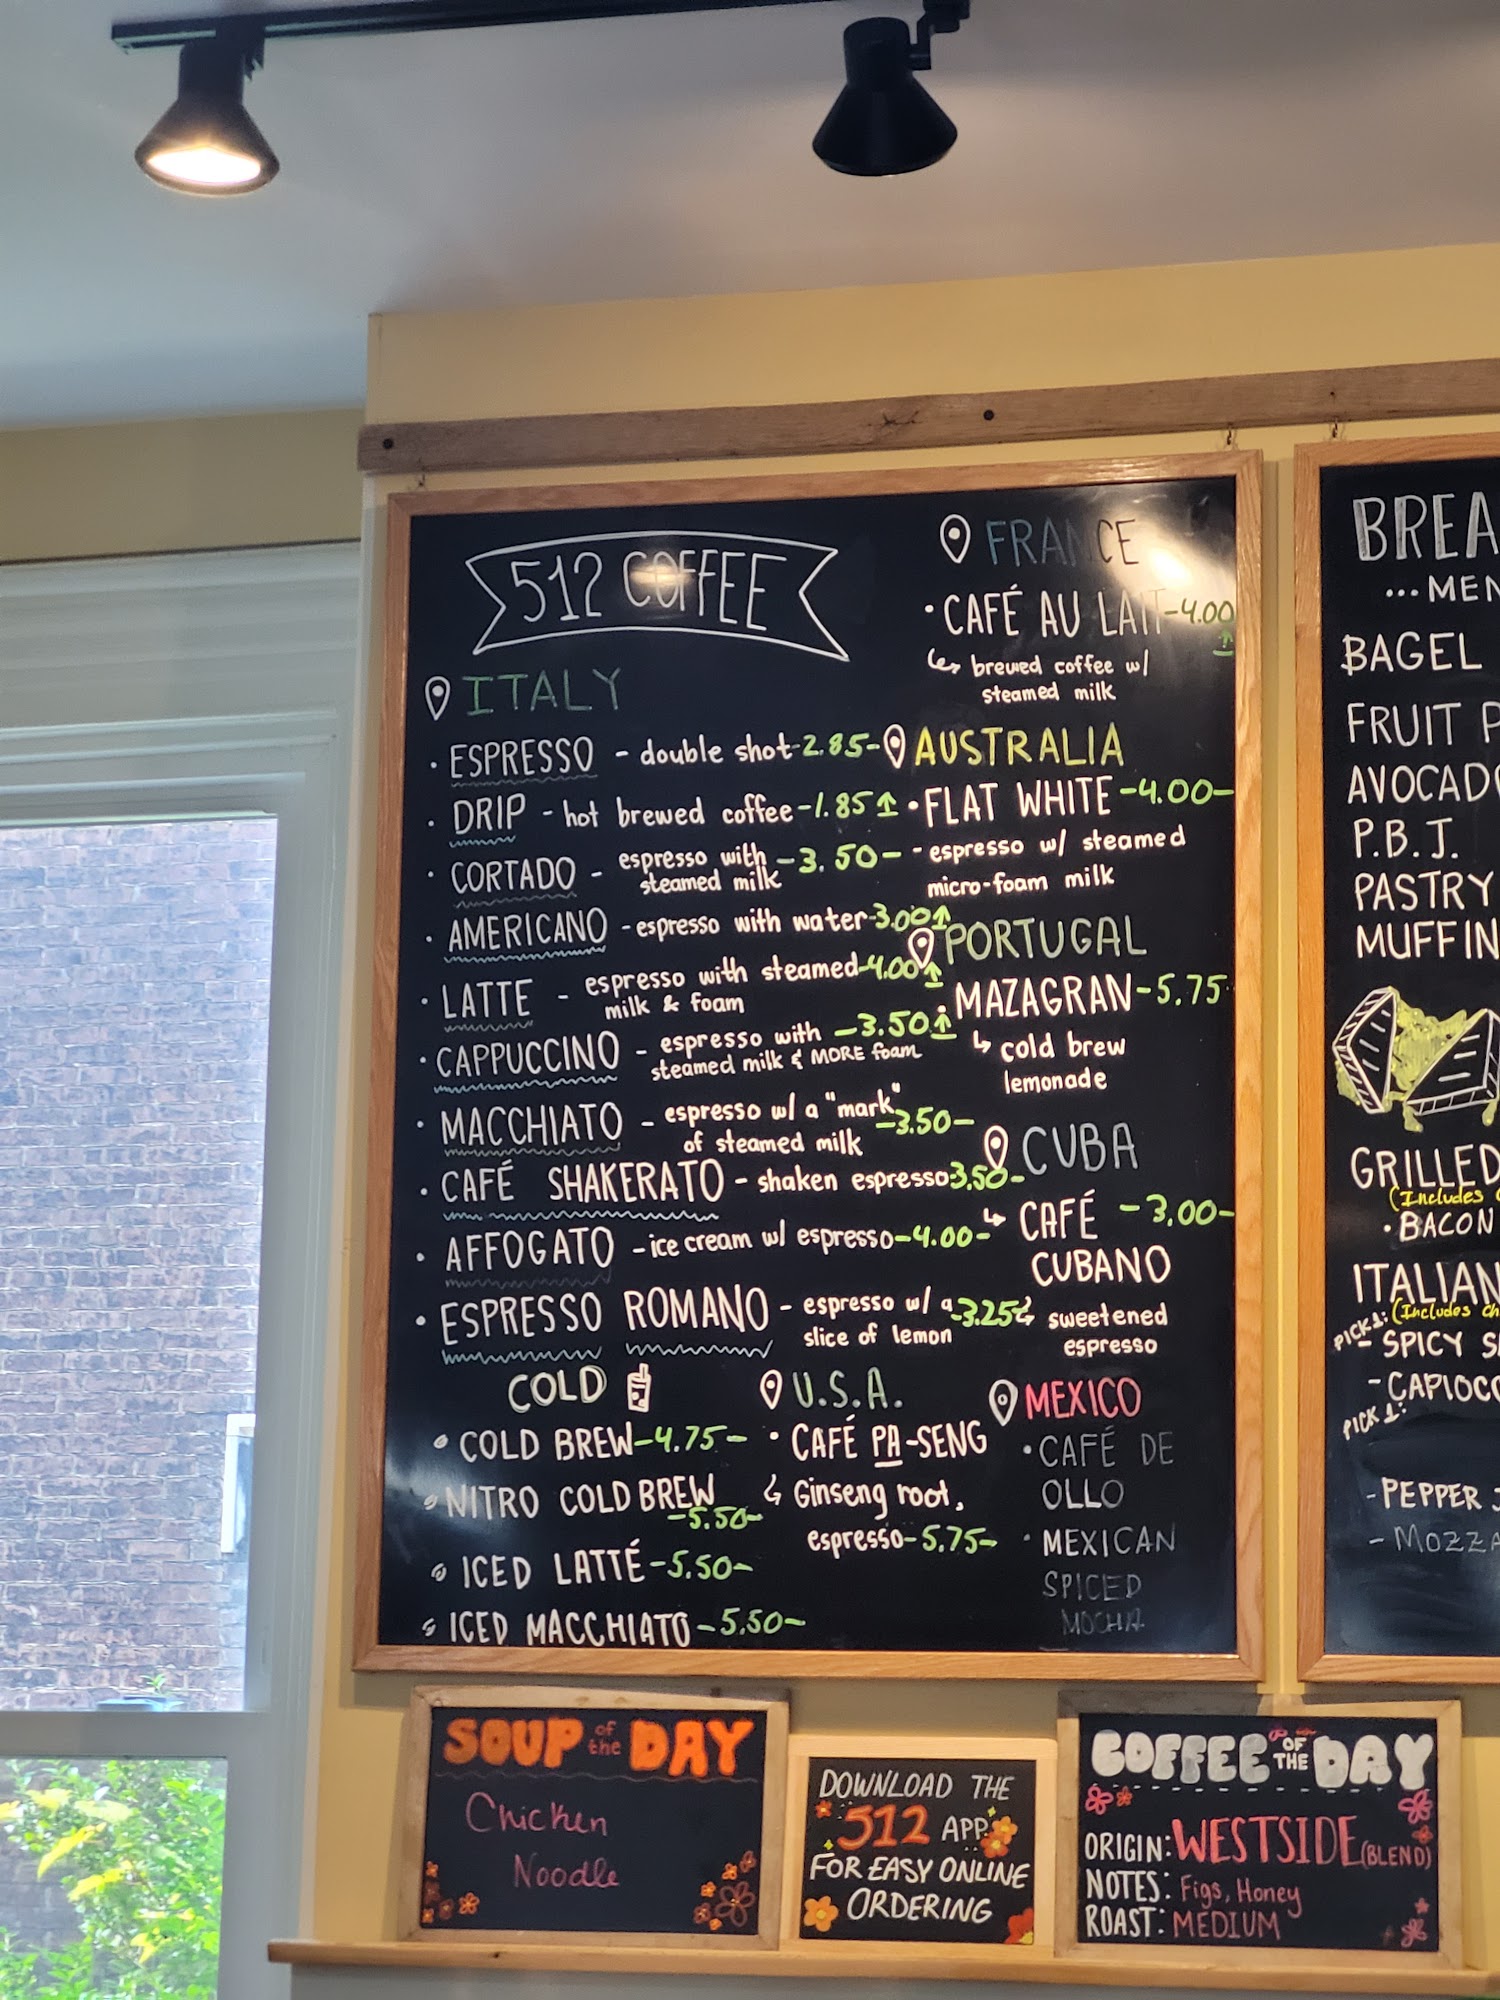 512 COFFEE
ITALY
· ESPRESSO - double shot-2.85-
· DRIP - hot brewed coffee-1.85↑
· CORTADO - espresso with -3.50-
steamed milk
· AMERICANO - espresso with water-3.00↑
· LATTE - espresso with steamed-4.00↑
milk & foam
· CAPPUCCINO - espresso with -3.50↑
steamed milk & MORE foam
· MACCHIATO - espresso w/ a "mark" -3.50-
of steamed milk
· CAFÉ SHAKERATO - shaken espresso-3.50-
· AFFOGATO - ice cream w/ espresso-4.00-
· ESPRESSO ROMANO - espresso w/ a-3.25-
slice of lemon
FRANCE
· CAFÉ AU LAIT-4.00
↑
↳ brewed coffee w/
steamed milk
AUSTRALIA
· FLAT WHITE -4.00-
- espresso w/ steamed
micro-foam milk
PORTUGAL
· MAZAGRAN-5.75
↳ cold brew
lemonade
CUBA
↳ CAFÉ -3.00-
CUBANO
↳ sweetened
espresso
COLD
COLD BREW-4.75-
NITRO COLD BREW
-5.50-
ICED LATTÉ-5.50-
ICED MACCHIATO-5.50-
U.S.A.
· CAFÉ PA-SENG
↳ Ginseng root,
espresso-5.75-
MEXICO
· CAFÉ DE
OLLO
· MEXICAN
SPICED
MOCHA
BREA
... MEN
BAGEL
FRUIT P
AVOCADO
P.B.J.
PASTRY
MUFFIN
GRILLED
(Includes
· BACON
ITALIAN
(Includes Ch
PICK 1:
- SPICY S
- CAPIOCO
PICK 1:
- PEPPER J
- MOZZA
SOUP of the DAY
Chicken
Noodle
DOWNLOAD THE
512 APP
FOR EASY ONLINE
ORDERING
COFFEE OF THE DAY
ORIGIN: WESTSIDE (BLEND)
NOTES: Figs, Honey
ROAST: MEDIUM